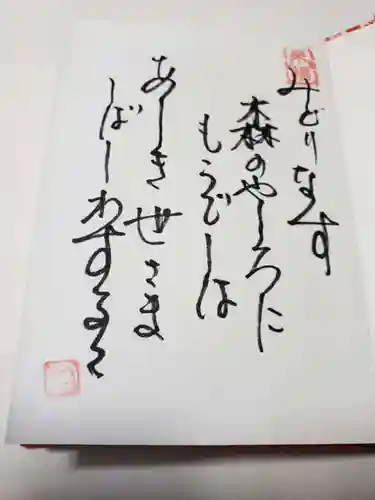 みどりなす
森のやしろに
もうでしは
あしき世さま
しばしわするる